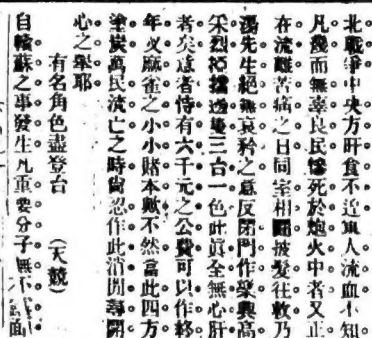 北戰爭中央方旰食不近與人流血不知
凡幾而無辜良民慘死於炮火中者又正
在流離苦痛之日同室相鬬披髮往救乃
湯先生絕無哀矜之意反閉門作樂興高
采烈掉擋過雙三台一色此眞全無心肝
者矣意者恃有六千元之公費可以作終
年叉麻雀之小小賭本歟不然當此四方
塗炭萬民流亡之時尙忍作此消閒尋開
心之舉耶
有名角色盡登台　（天競）
自輪蘇之事發生凡重要分子無不　面